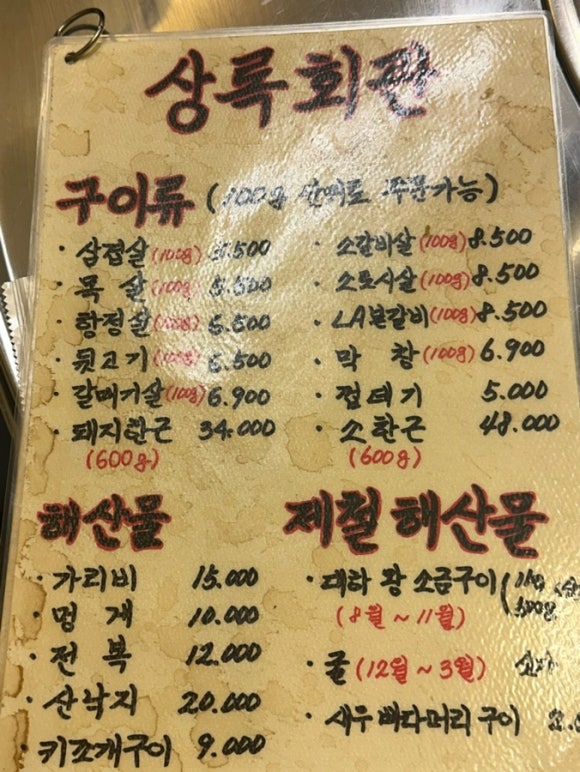 상록회관
구이류 (100g 단위로 주문가능)
· 삼겹살 (100g) 5.500
· 목 살 (100g) 5.500
· 항정살 (100g) 6.500
· 뒷고기 (100g) 6.500
· 갈매기살 (100g) 6.900
· 돼지한근 34.000
(600g)
· 소갈비살 (100g) 8.500
· 소토시살 (100g) 8.500
· LA본갈비 (100g) 8.500
· 막 창 (100g) 6.900
· 껍데기 5.000
· 소한근 48.000
(600g)
해산물
· 가리비 15.000
· 멍 게 10.000
· 전 복 12.000
· 산낙지 20.000
· 키조개구이 9.000
제철 해산물
· 대하 왕 소금구이
(8월 ~ 11월)
· 굴 (12월 ~ 3월)
· 새우 빠다머리 구이